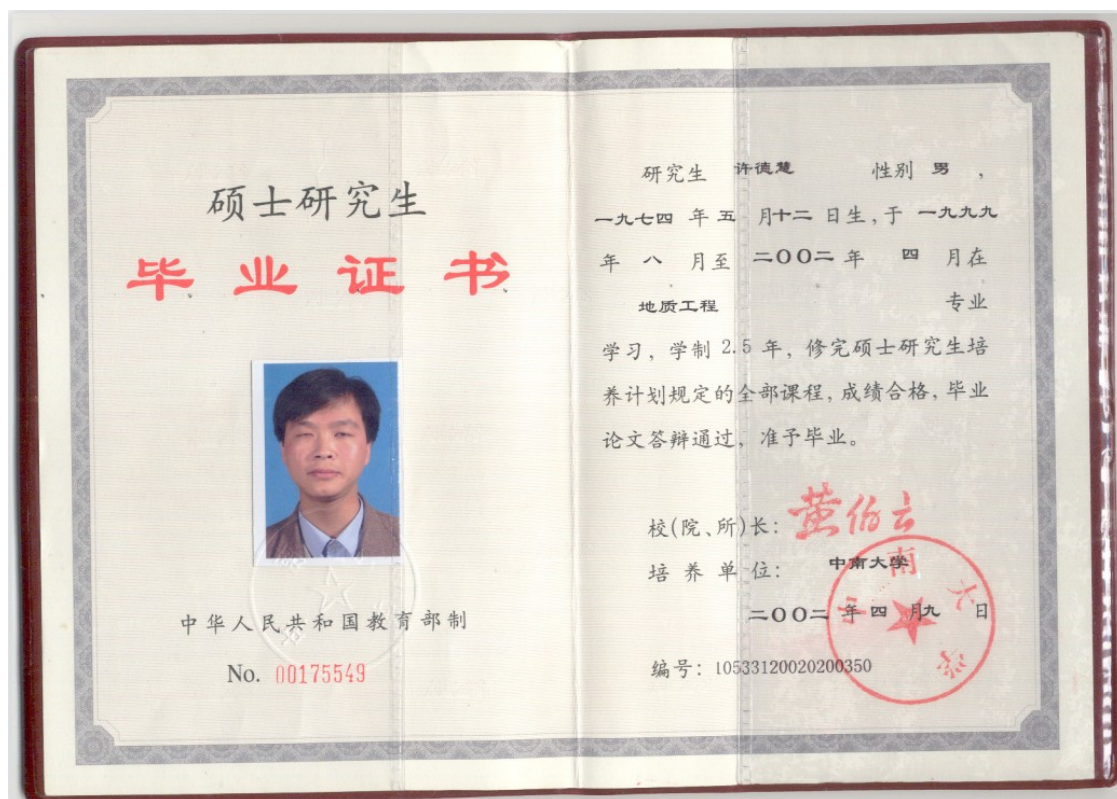 硕士研究生
毕业证书
中华人民共和国教育部制
No. 00175549
研究生 许德慧 性别 男 ,
一九七四 年 五 月十二 日生,于 一九九九
年 八 月至 二〇〇二 年 四 月在
地质工程 专业
学习, 学制 2.5 年, 修完硕士研究生培
养计划规定的全部课程, 成绩合格, 毕业
论文答辩通过, 准予毕业。
校(院、所)长: 黄伯云
培 养 单 位: 中南大学
二〇〇二 年 四 月九 日
编号: 10533120020200350
中南大学